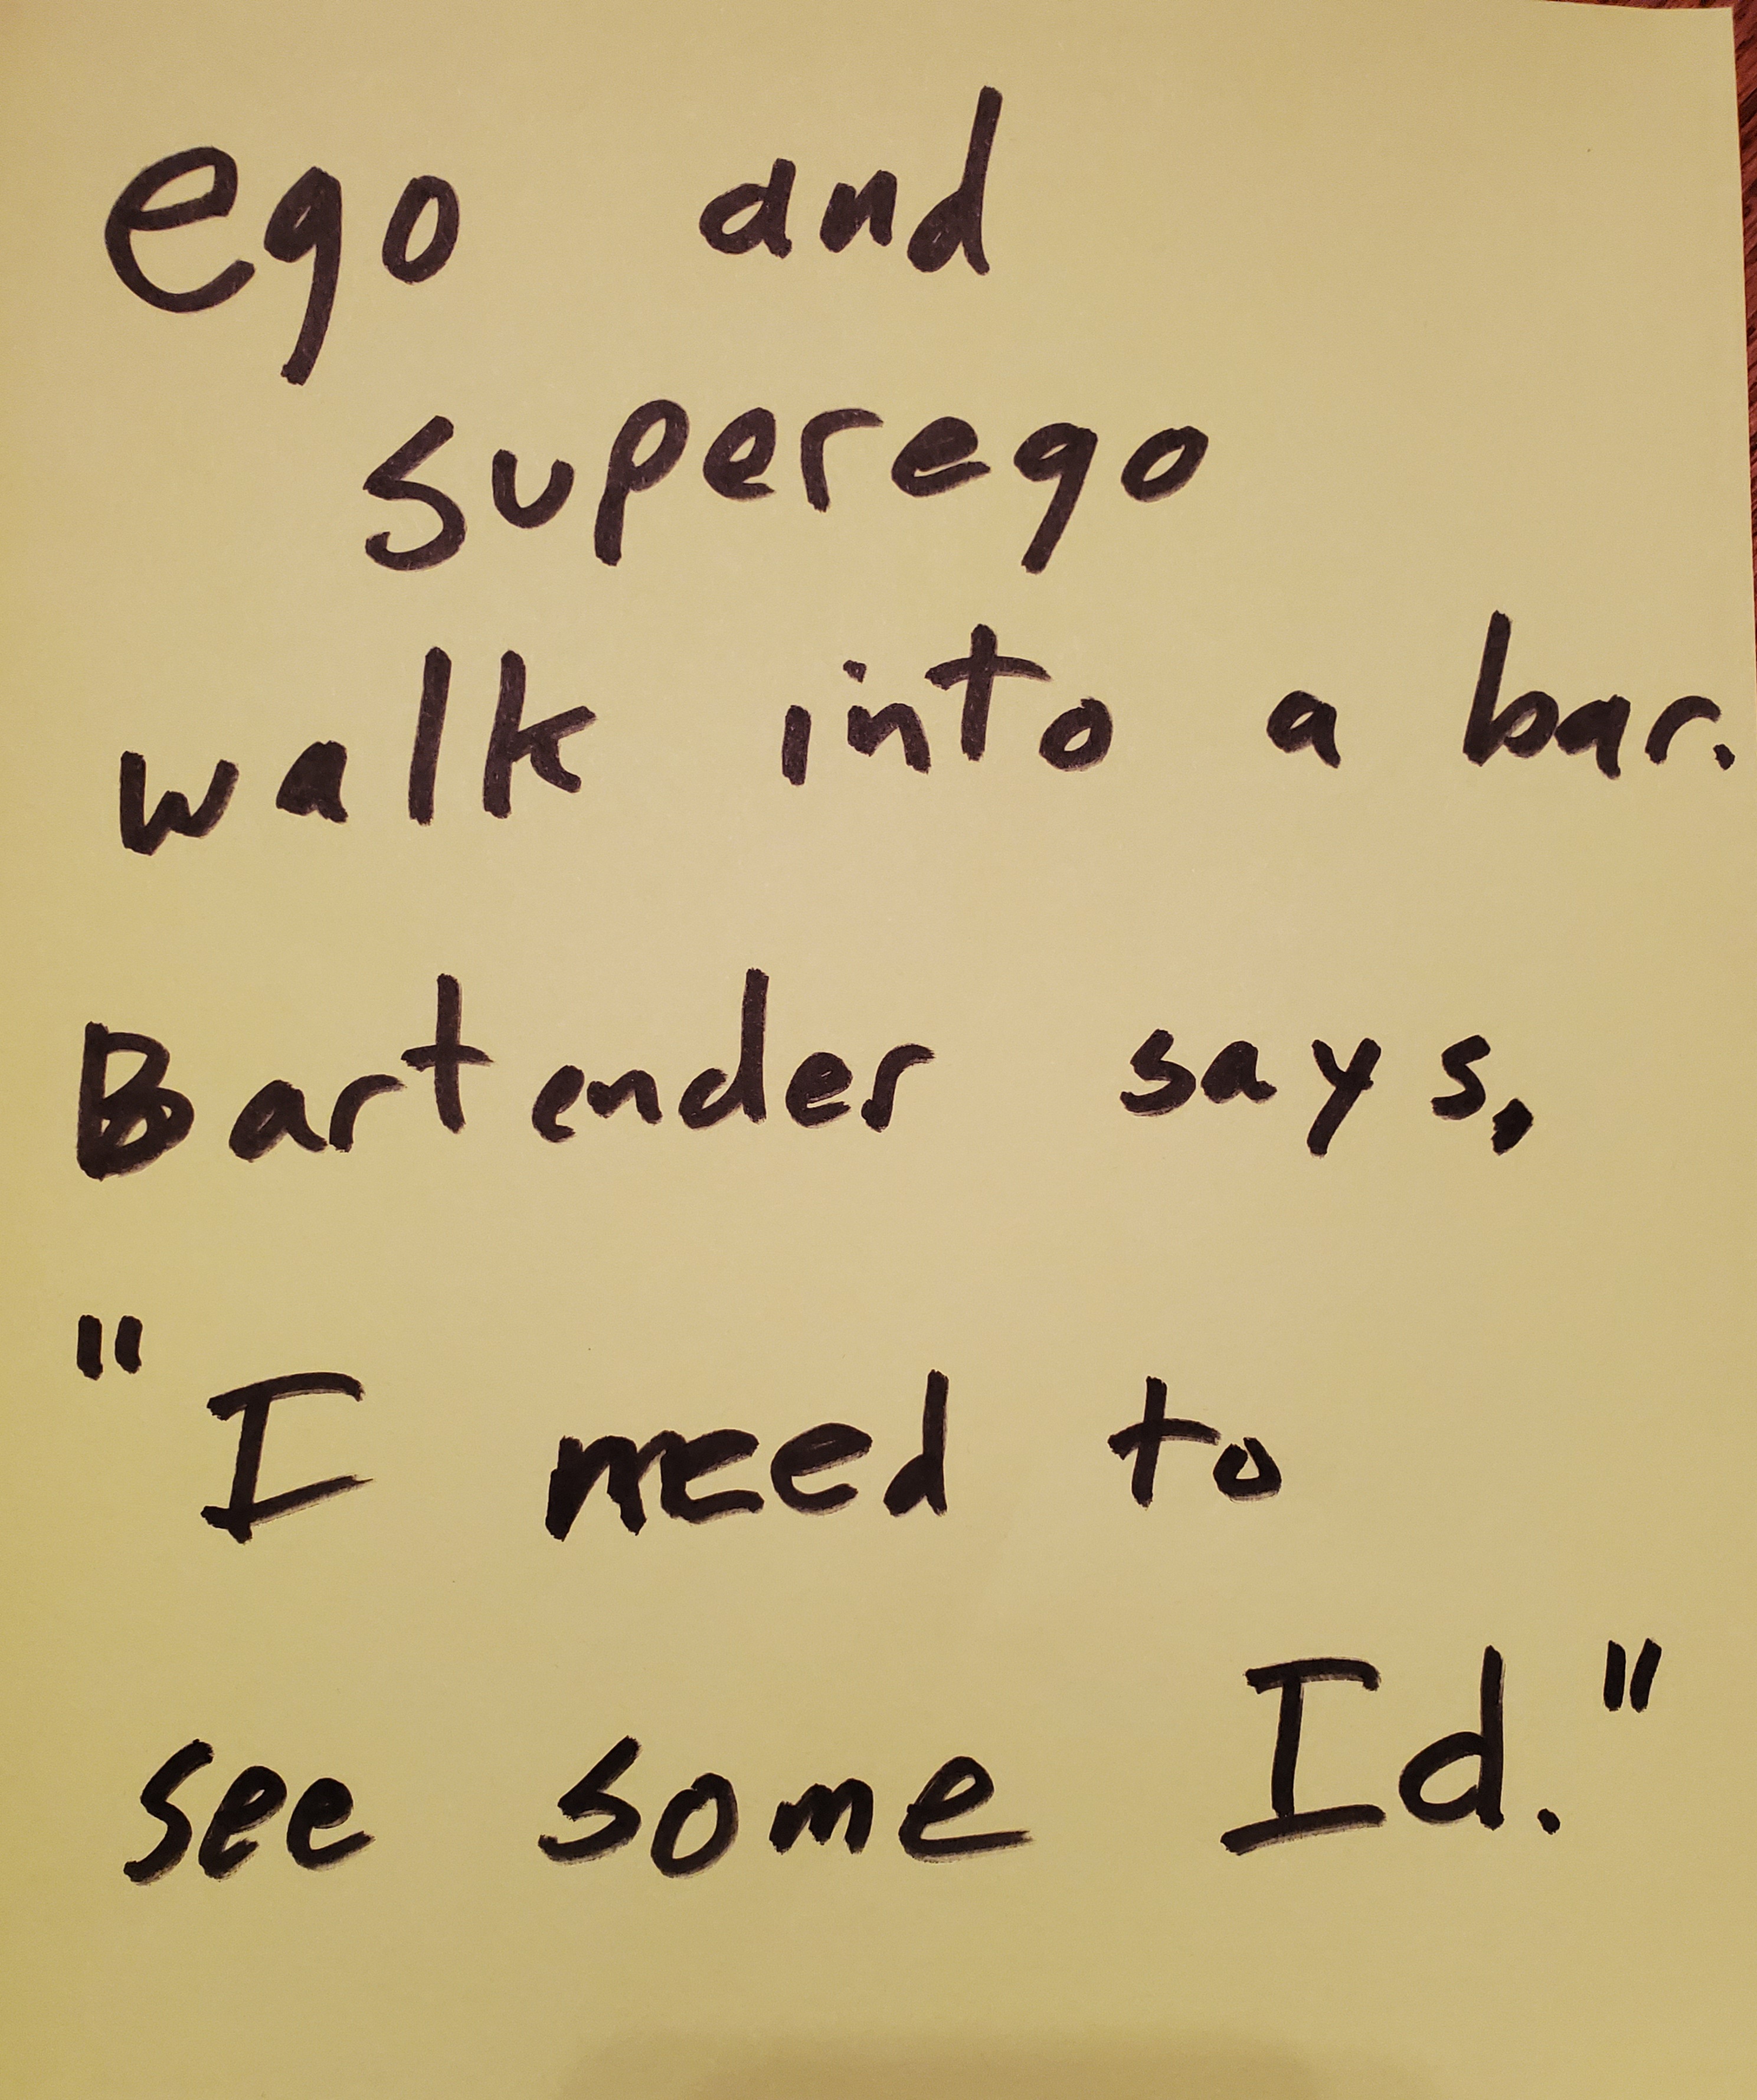 ego and
superego
walk into a bar.
Bartender says,
"I need to
see some Id."